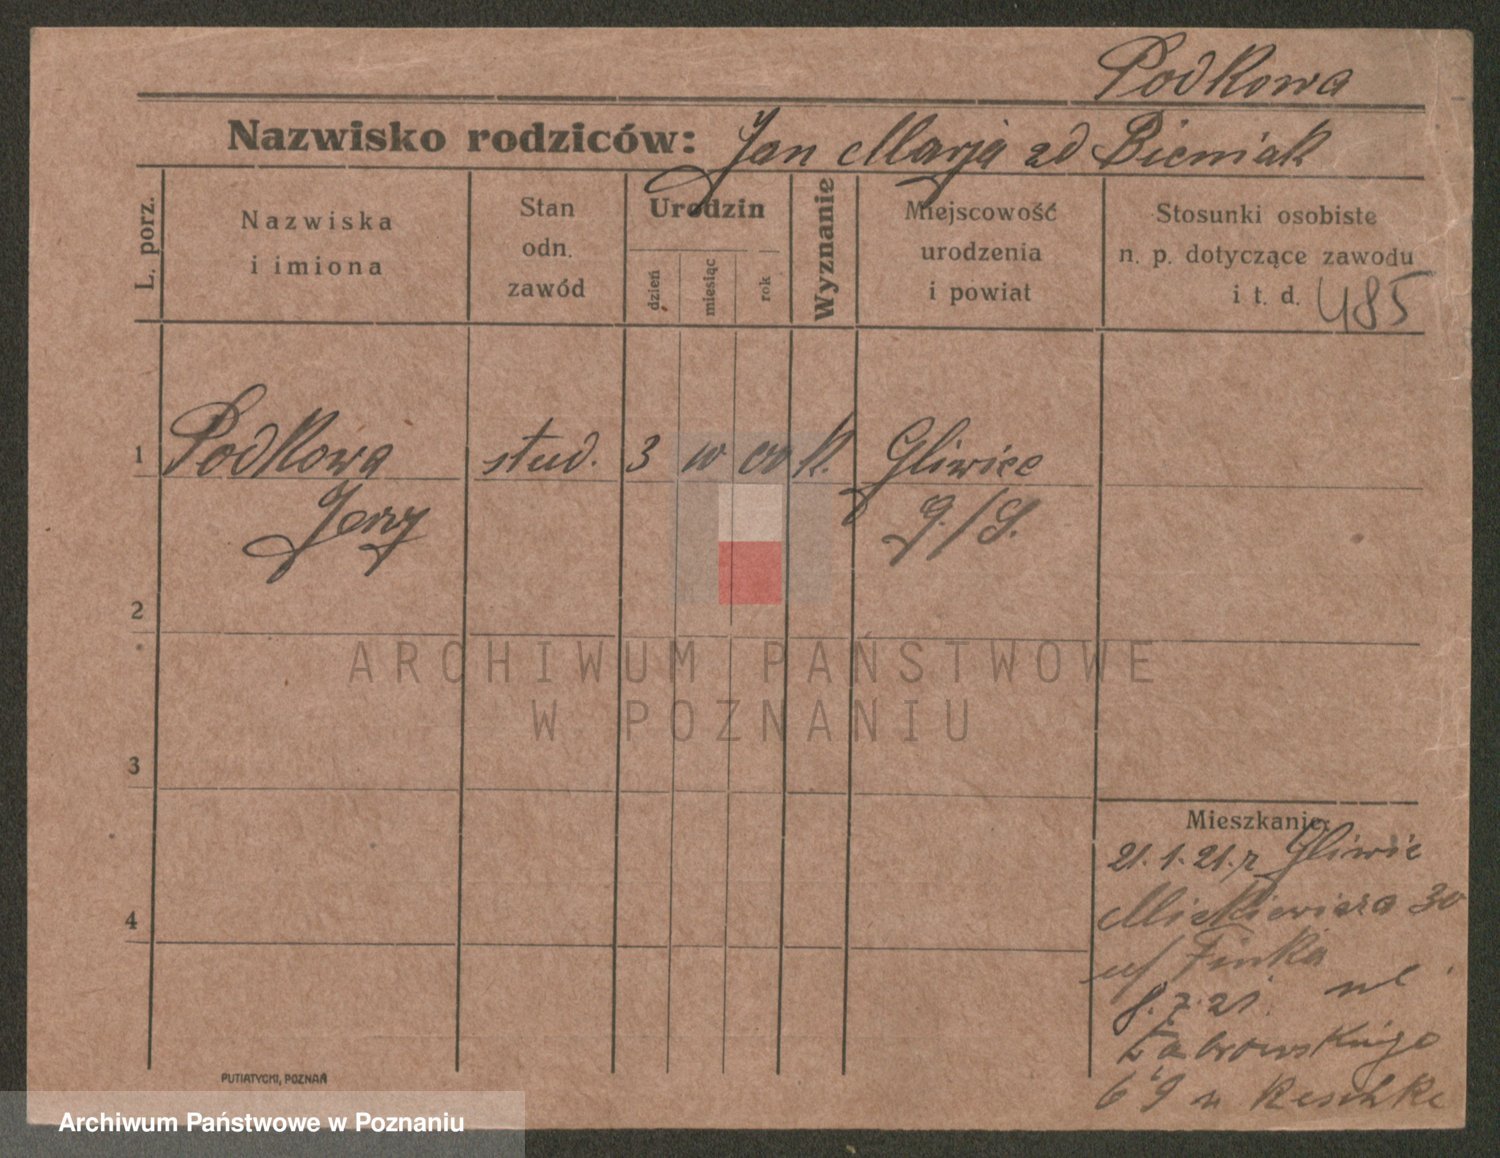 Podkowa
Nazwisko rodziców: Jan Marja zd Bieniak
L. porz.
Nazwiska
i imiona
Stan
odn.
zawód
Urodzin
dzień
miesiąc
rok
Wyznanie
Miejscowość
urodzenia
i powiat
Stosunki osobiste
n. p. dotyczące zawodu
i t. d. 485
1 Podkowa stud. 3 k. Gliwice
Jerzy G./S.
2
3
4
ARCHIWUM PAŃSTWOWE
W POZNANIU
Mieszkanie:
21.1.21. z Gliwic
Mickiewicza 30
u/ Finka
8.7.21. ul
6/9 u Reschke
PUTIATYCKI, POZNAŃ
Archiwum Państwowe w Poznaniu